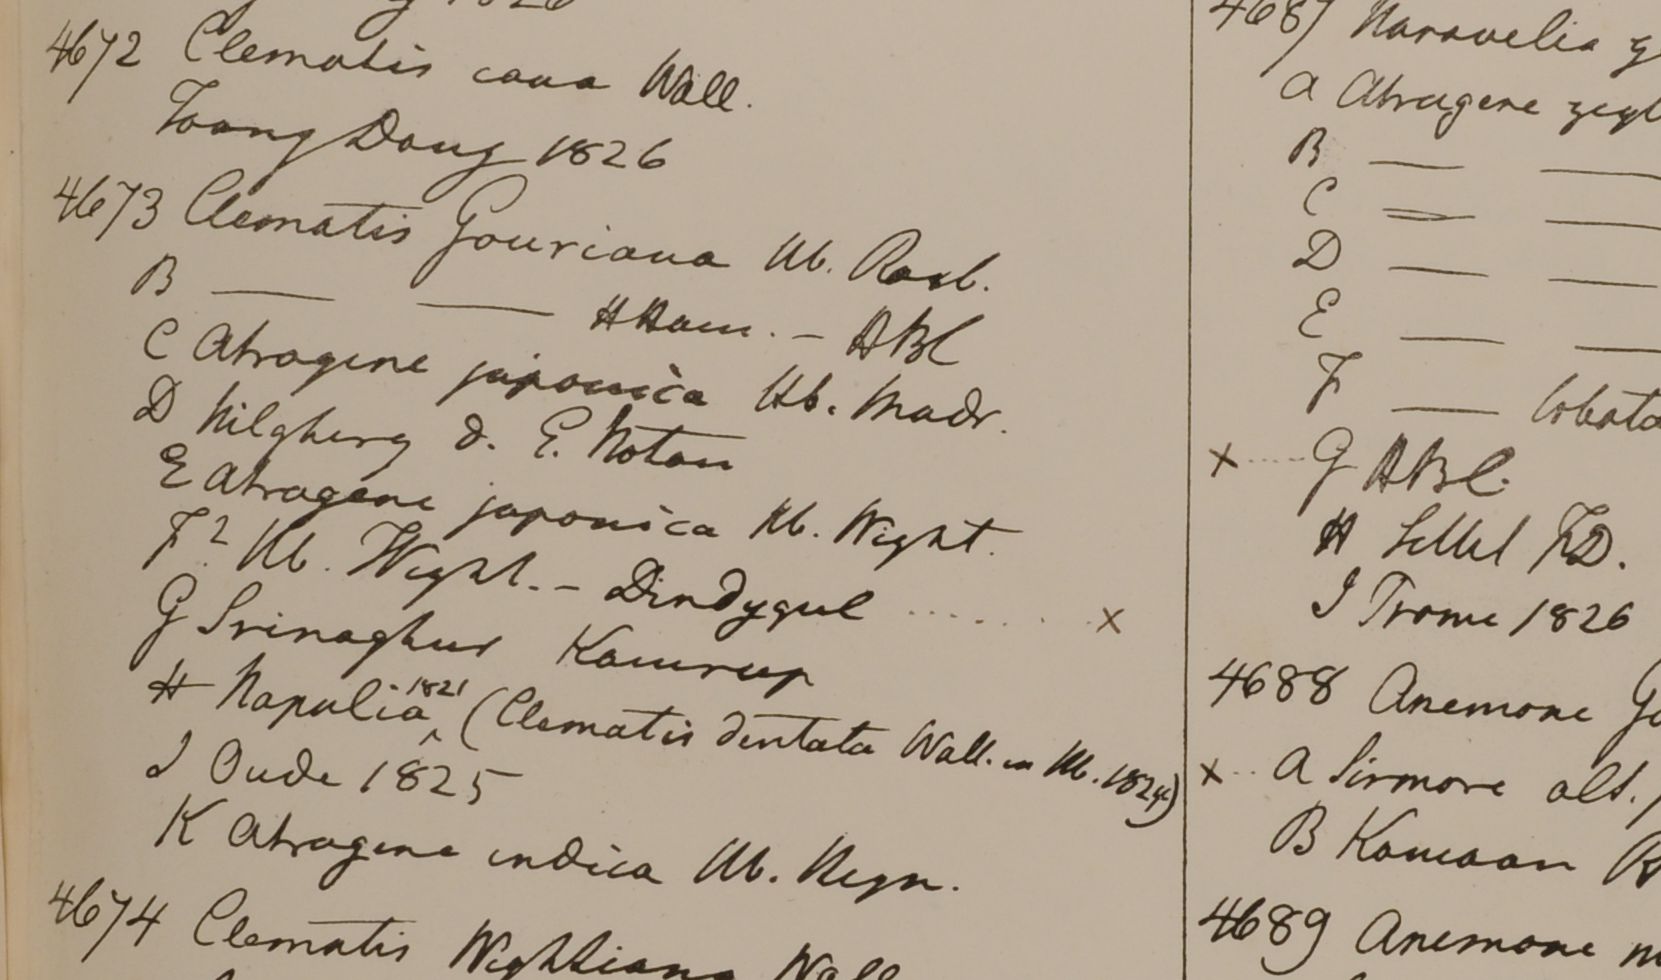 4672 Clematis cana Wall.
Toong Dong 1826
4673 Clematis Gouriana Hb. Roxb.
B — — HHam. – HBC
C Atragene japonica Hb. Madr.
D Nilghery d. E. Noton
E Atragene japonica Hb. Wight.
F? Hb. Wight. – Dindygul ........ x
G Srinaghur Kamrup
H Napalia 1821 (Clematis dentata Wall. in Hb. 1824)
I Oude 1825
K Atragene indica Hb. Heyn.
4674 Clematis Wightiana Wall
4687 Naravelia
a Atragene
B — —
C — —
D — —
E — —
F — lobata
x .... G HBC.
H F.D.
I Prome 1826
4688 Anemone
x .. a Sirmore alt.
B Kamaon
4689 Anemone